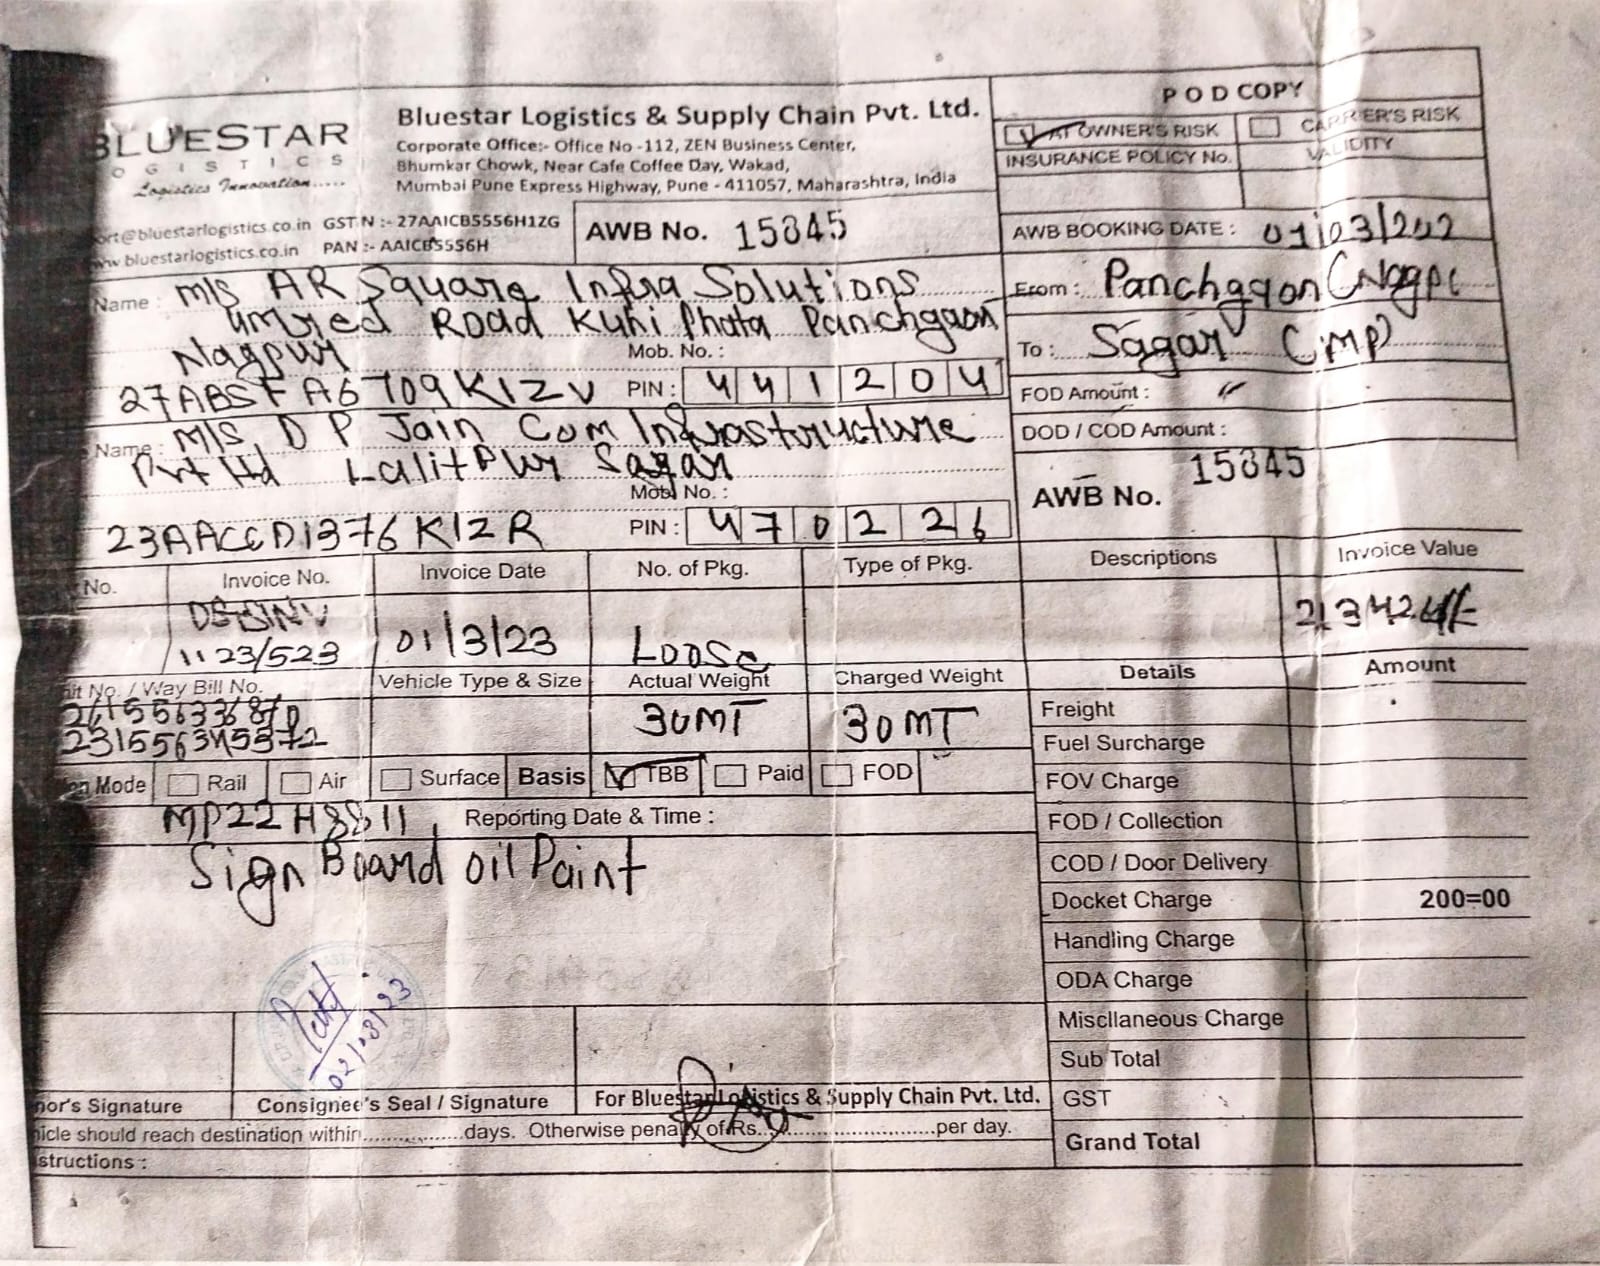 BLUESTAR
OGISTICS
Logistics Innovation.....
Bluestar Logistics & Supply Chain Pvt. Ltd.
Corporate Office:- Office No -112, ZEN Business Center,
Bhumkar Chowk, Near Cafe Coffee Day, Wakad,
Mumbai Pune Express Highway, Pune - 411057, Maharashtra, India
ort@bluestarlogistics.co.in GST N :- 27AAICB5556H1ZG
ww.bluestarlogistics.co.in PAN :- AAICB5556H
AWB No. 15845
POD COPY
AT OWNER'S RISK CARRIER'S RISK
INSURANCE POLICY No. VALIDITY
AWB BOOKING DATE : 01/03/202
Name : M/s AR Square Infra Solutions
Umred Road Kuhi Phata Panchgaon
Nagpur Mob. No. :
27ABSFA6709K1ZV PIN : 441204
From : Panchgaon (Nagp
To : Sagar (MP)
FOD Amount :
DOD / COD Amount :
Name : M/S, D P Jain Com Infrastructure
Pvt Ltd Lalitpur Sagar
Mob. No. :
23AACCD1376K1ZR PIN : 470226
AWB No. 15845
No. Invoice No. Invoice Date No. of Pkg. Type of Pkg. Descriptions Invoice Value
1123/523 01/3/23 Loose 213424/-
it No. / Way Bill No. Vehicle Type & Size Actual Weight Charged Weight Details Amount
30MT 30MT
231556345372
on Mode Rail Air Surface Basis TBB Paid FOD
MP22H8811 Reporting Date & Time :
Sign Board oil Paint
Freight
Fuel Surcharge
FOV Charge
FOD / Collection
COD / Door Delivery
Docket Charge 200=00
Handling Charge
ODA Charge
Miscllaneous Charge
Sub Total
GST
Grand Total
02/03/23
nor's Signature Consignee's Seal / Signature For Bluestar Logistics & Supply Chain Pvt. Ltd.
icle should reach destination within..................days. Otherwise penalty of Rs..............................per day.
structions :